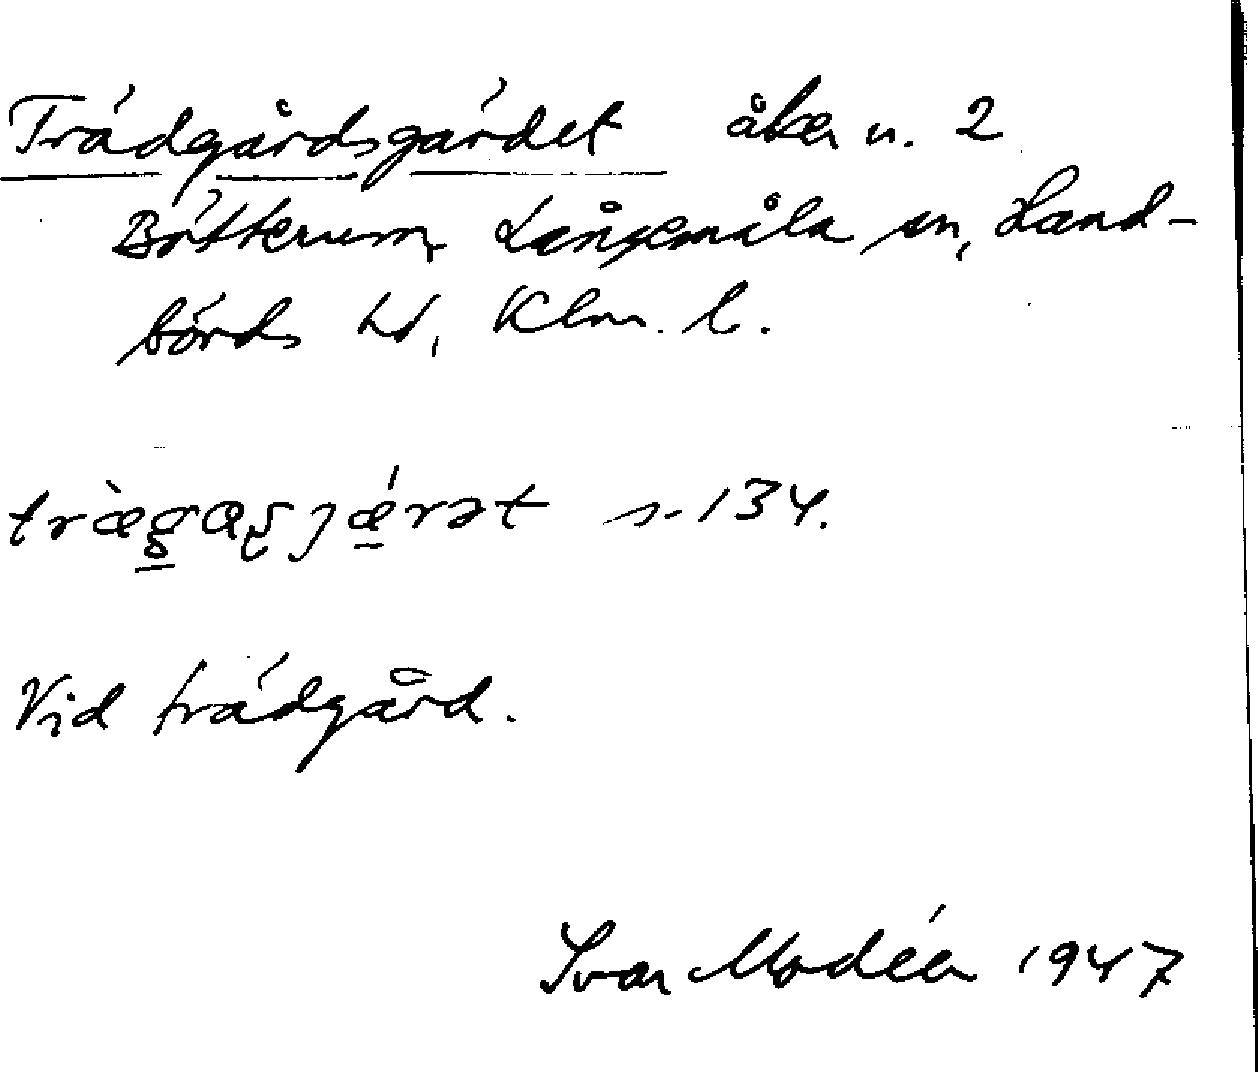 Trädgårdsgärdet åker n. 2
Bötterum, Långemåla sn, Hand-
börds hd, Klm. l.
træ̀gaʂjǽrət s. 134.
Vid trädgård.
Ivar Modéer 1947